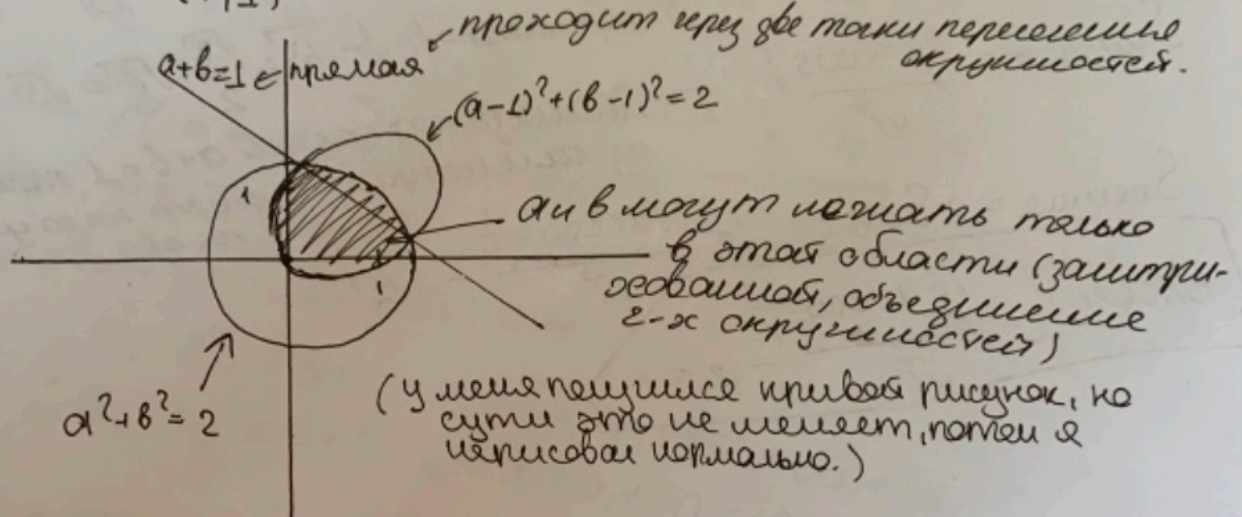 проходит через две точки пересечения
окружностей.
a+b=1 ← прямая
(a-1)²+(b-1)²=2
1
a и b могут лежать только
в этой области (заштри-
хованной, объединение
2-х окружностей)
1
a²+b²=2
(у меня получился кривой рисунок, но
сути это не меняет, потом я
нарисовал нормально.)